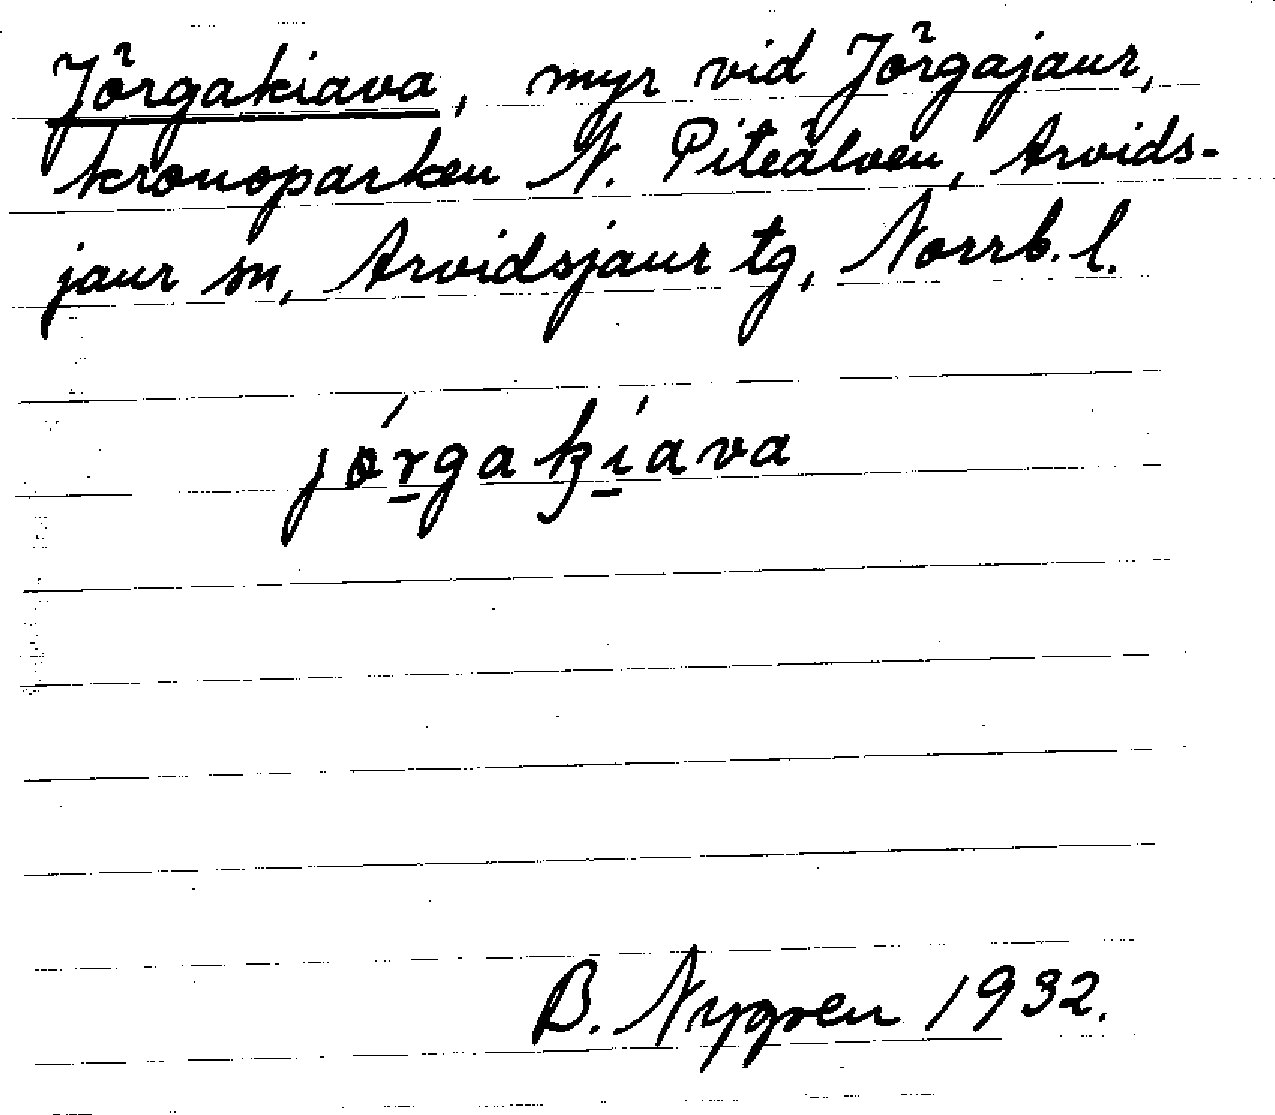 Jörgakiava, myr vid Jörgajaur,
kronoparken N. Piteälven, Arvids-
jaur sn, Arvidsjaur tg, Norrb. l.
jó̱rgaķí̱ava
B. Nygren 1932.